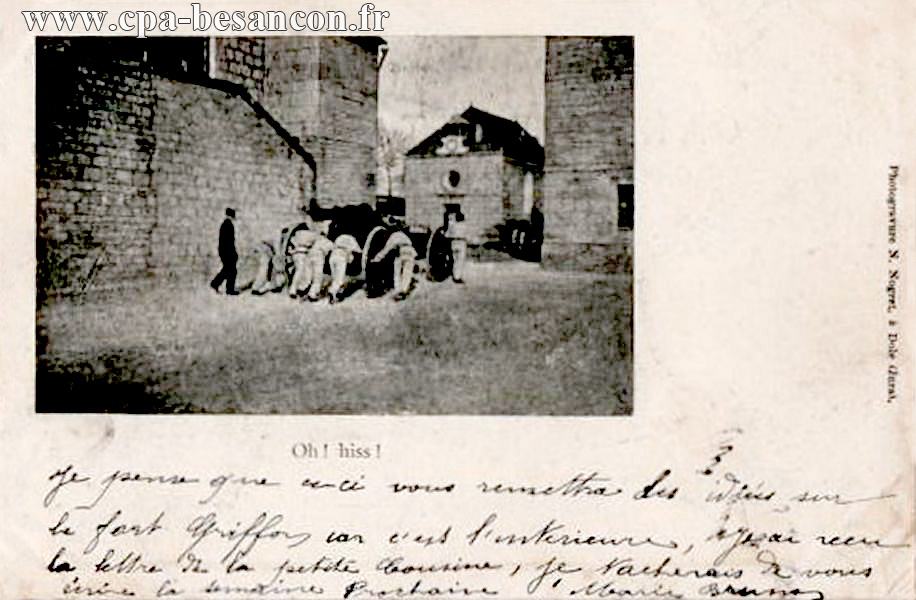 www.cpa-besancon.fr
Photogravure N. Nogret, à Dole (Jura).
Oh! hiss!
Je pense que ceci vous remettra des idées sur
le fort Griffon car c'est l'intérieure, j'ai recu
la lettre de la petite Cousine, je tacherais de vous
écrire la semaine Prochaine